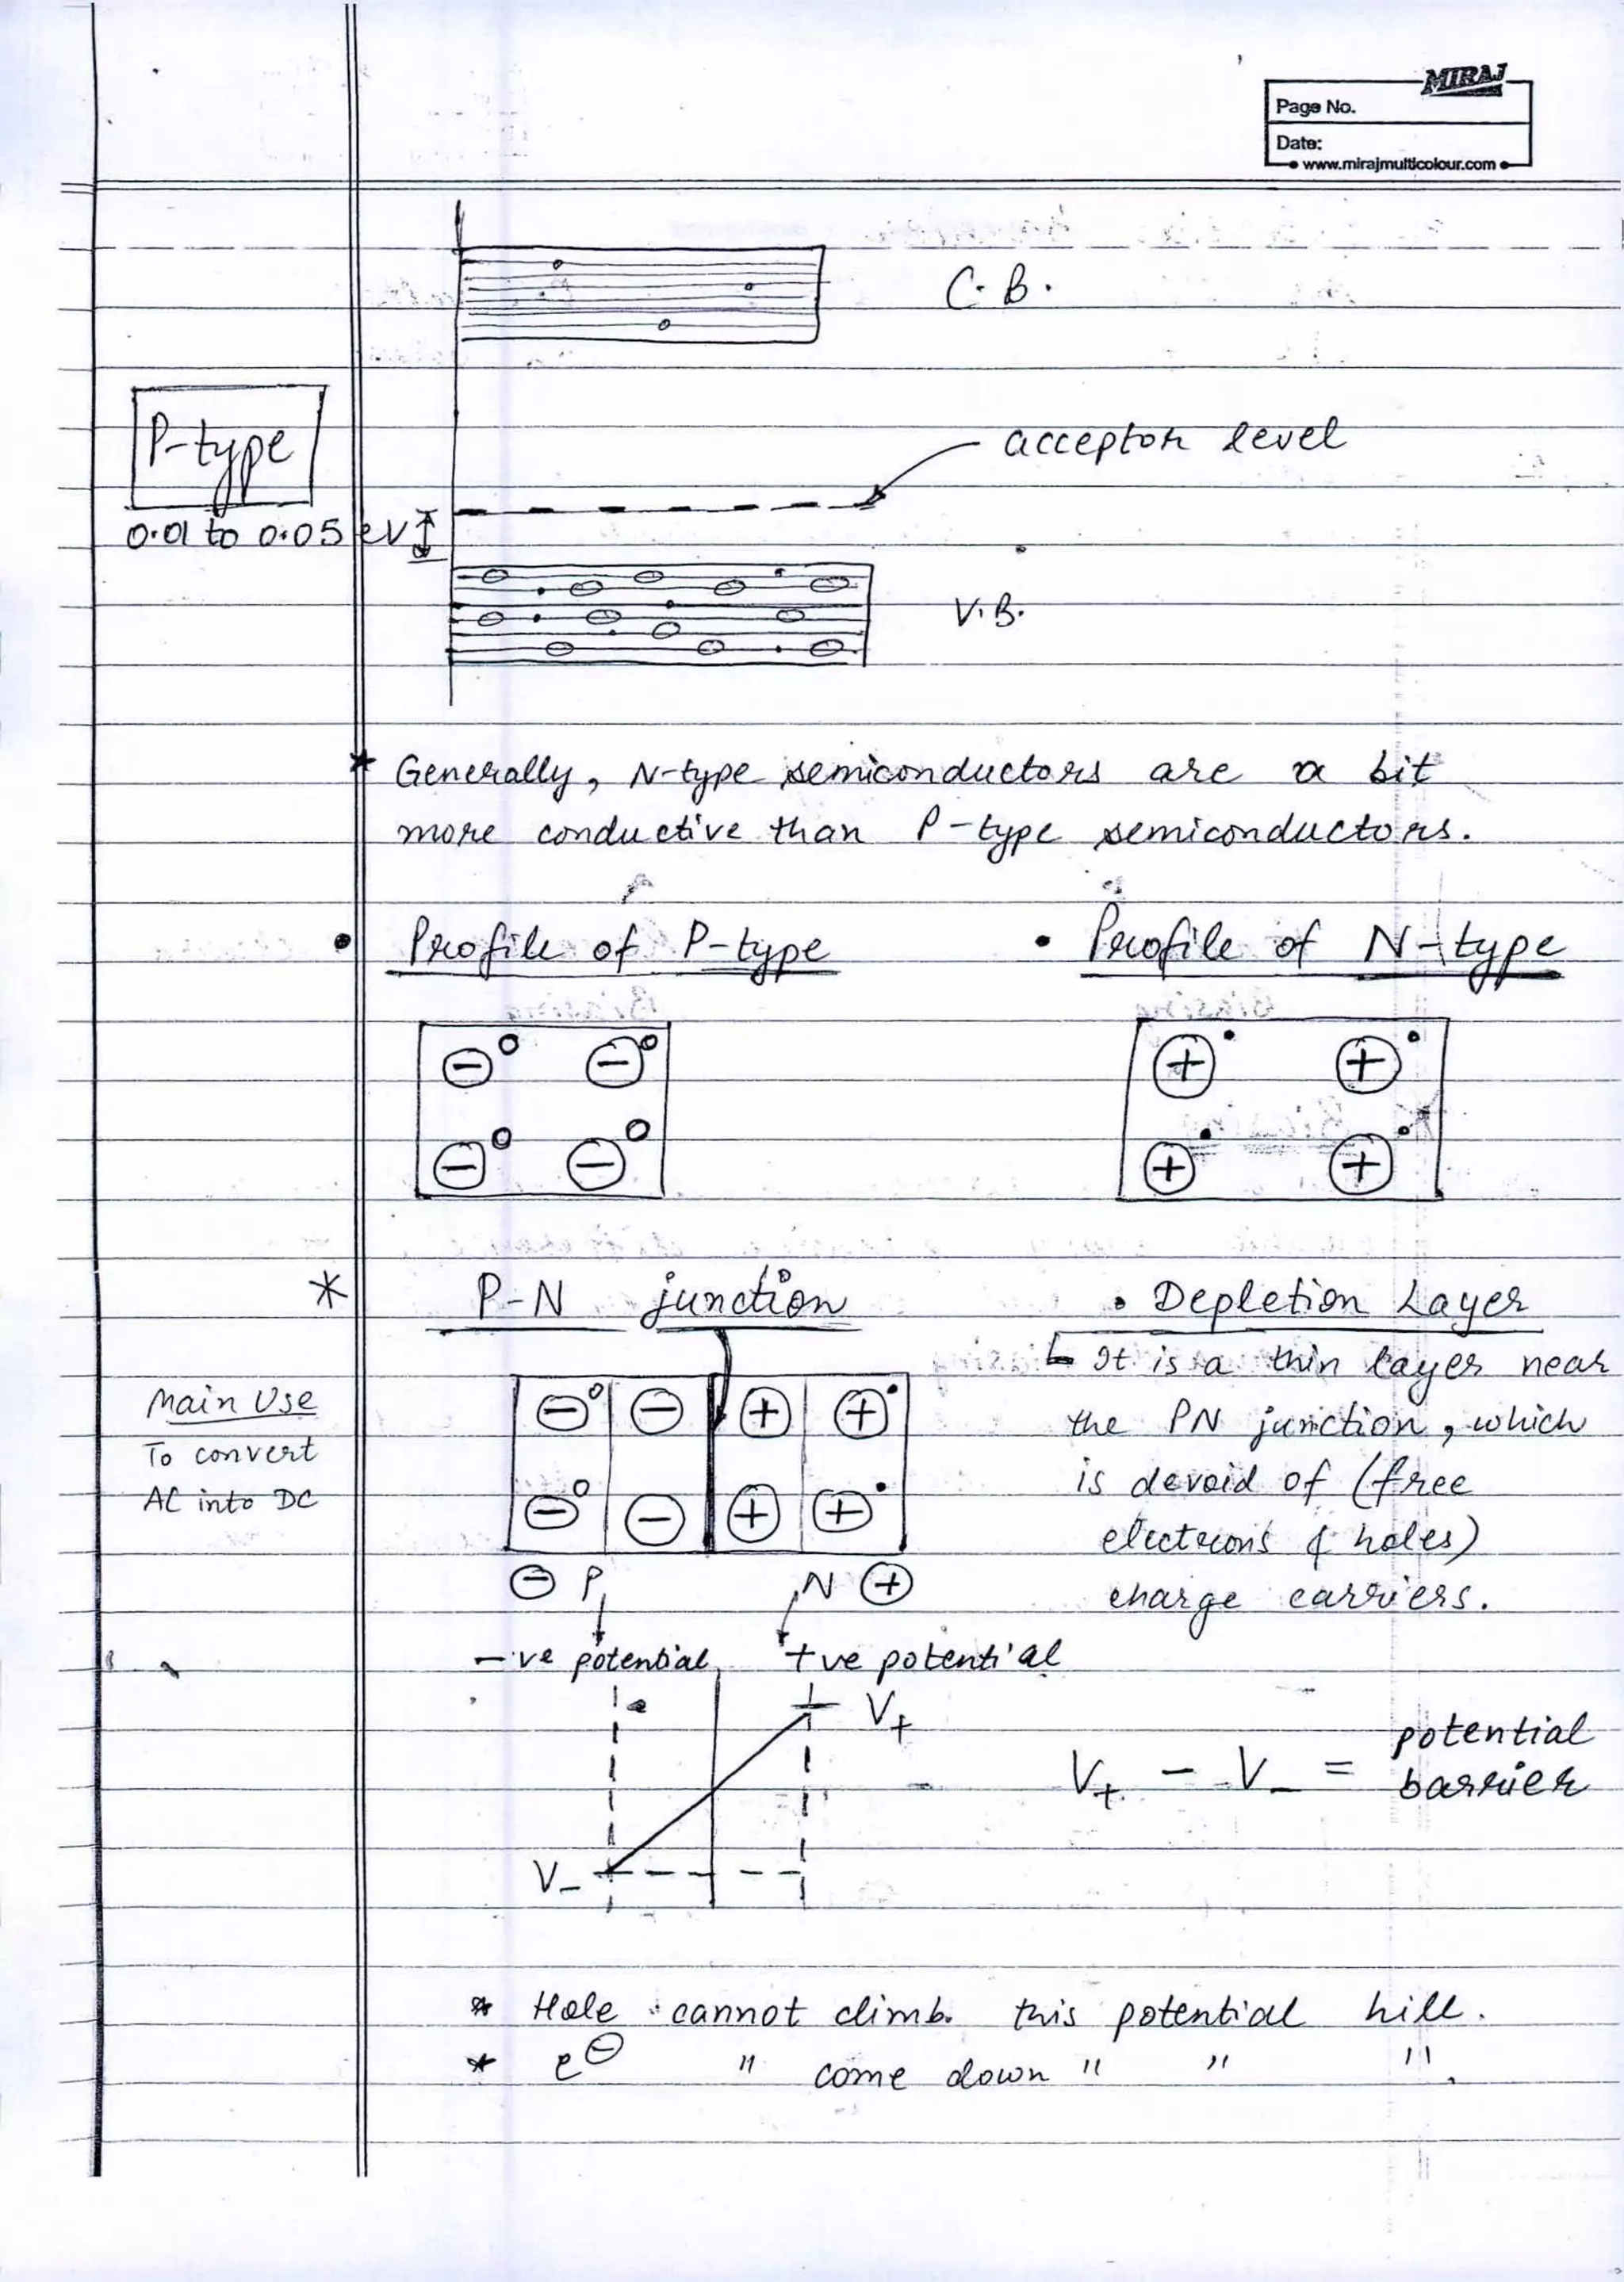 MIRAJ
Page No.
Date:
www.mirajmulticolour.com
C.B.
P-type
acceptor level
0.01 to 0.05 eV
V.B.
* Generally, N-type semiconductors are a bit
more conductive than P-type semiconductors.
• Profile of P-type
• Profile of N-type
− −
− −
+ +
+ +
* P-N junction
Main Use
To convert
AC into DC
− − + +
− − + +
⊖ P N ⊕
-ve potential +ve potential
• Depletion Layer
↳ It is a thin layer near
the PN junction, which
is devoid of (free
electrons & holes)
charge carriers.
V+
V-
V+ - V- = potential barrier
* Hole cannot climb this potential hill.
* e⊖ " come down " " ".